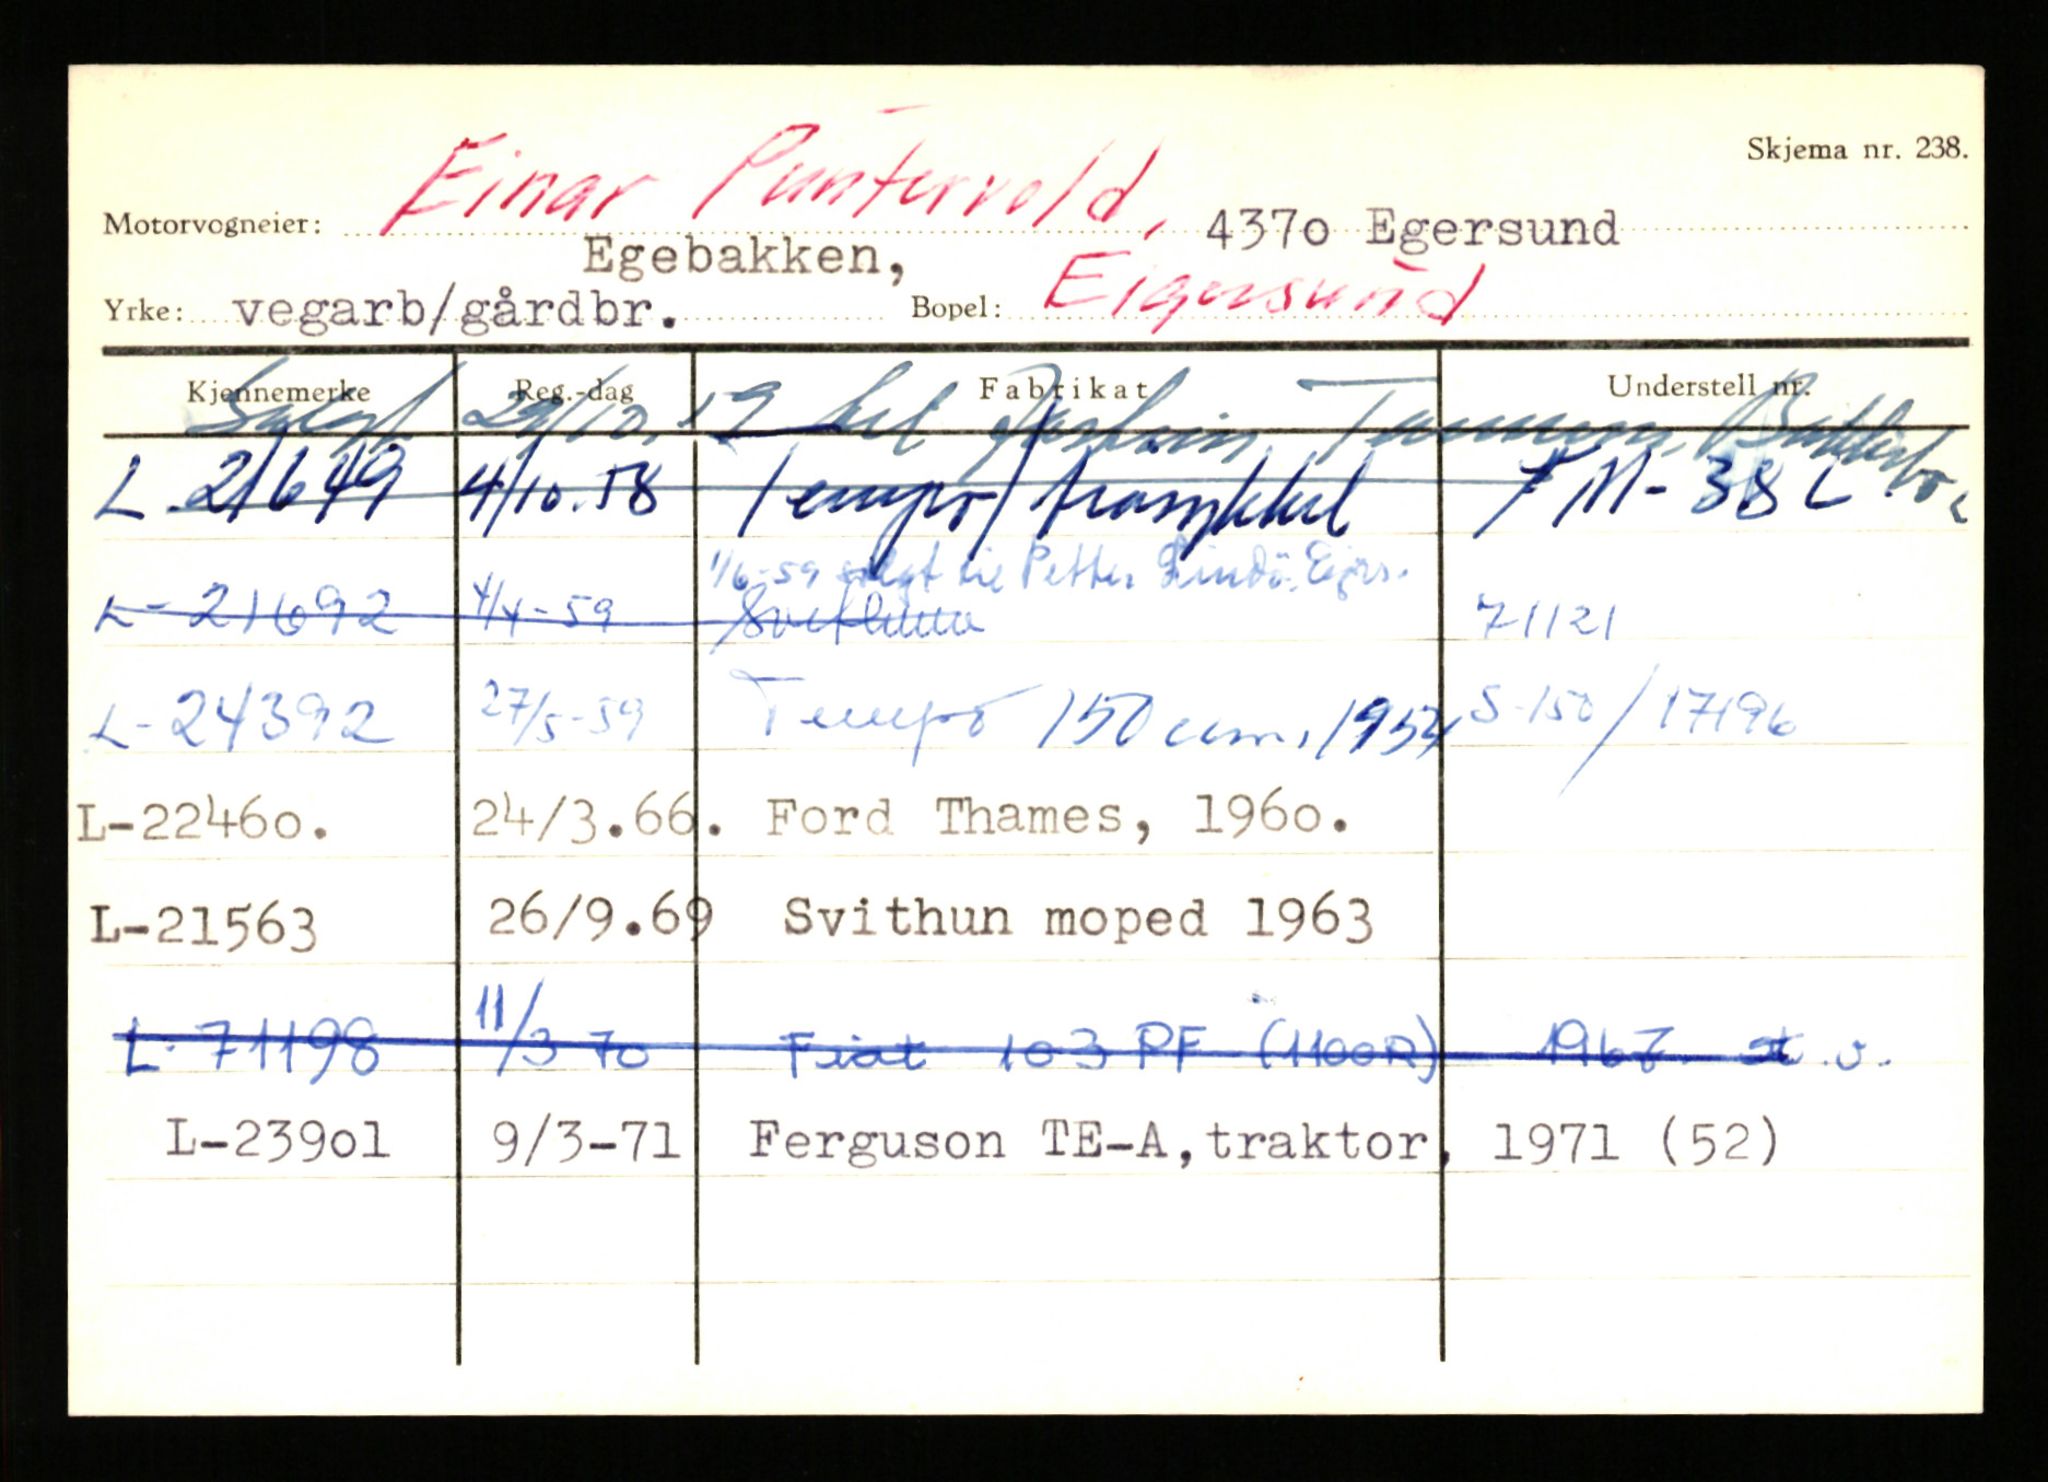 Skjema nr. 238.
Motorvogneier: Einar Puntervold, 4370 Egersund
Egebakken,
Yrke: vegarb/gårdbr. Bopel: Eigersund
Kjennemerke Reg.-dag Fabrikat Understell nr.
Solgt 29/10.59 til
L 21649 4/10.58 Tempo trasykkel 7M-38L
1/6-59 solgt til Petter Eigers.
L-21692 4/4-59 Svithun 71121
L-24392 27/5-59 Tempo 150 ccm, 1954 S-150/17196
L-22460. 24/3.66. Ford Thames, 1960.
L-21563 26/9.69 Svithun moped 1963
L-71198 11/3 70 Fiat 103 PF (1100R) 1967. st.v.
L-23901 9/3-71 Ferguson TE-A,traktor, 1971 (52)